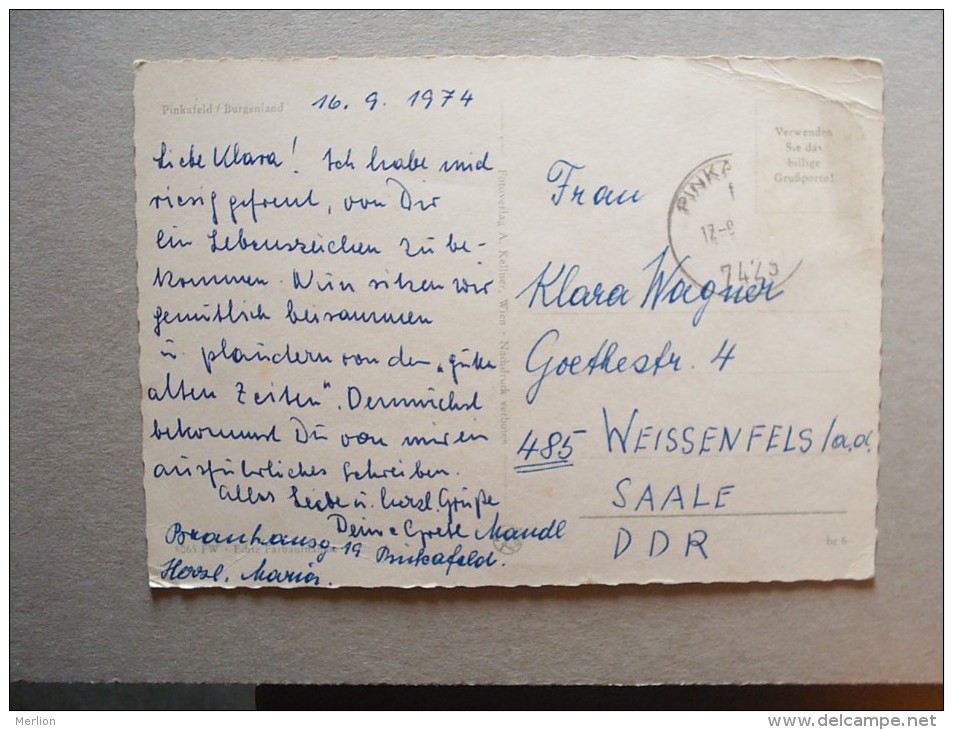 Pinkafeld / Burgenland
16. 9. 1974
Liebe Klara! Ich habe mich
riesig gefreut, von Dir
ein Lebenszeichen zu be-
kommen. Nun sitzen wir
gemütlich beisammen
u. plaudern von den „guten
alten Zeiten". Demnächst
bekommst Du von mir ein
ausführliches Schreiben.
Alles Liebe u. herzl. Grüße
Deine Gretl Mandl
Brauhausg 19 Pinkafeld.
Herzl. Maria.
8265 FW - Echte Farbaufnahme
Fotoverlag A. Kellner, Wien - Nachdruck verboten
Verwenden
Sie das
billige
Grußporto!
PINKA
17-9
7423
Frau
Klara Wagner
Goethestr. 4
485 WEISSENFELS/a.d.
SAALE
DDR
br 6
Merlion
www.delcampe.net